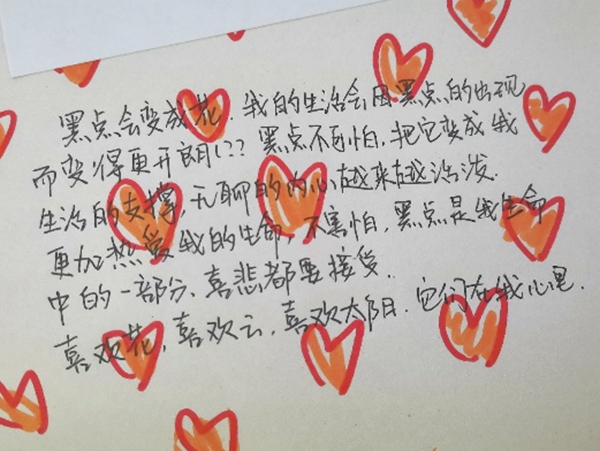 黑点会变成花.我的生活会因黑点的出现
而变得更开朗!??黑点不可怕,把它变成我
生活的支撑,无聊的内心越来越活泼.
更加热爱我的生命,不害怕,黑点是我生命
中的一部分、喜悲都要接受.
喜欢花,喜欢云,喜欢太阳.它们在我心里.